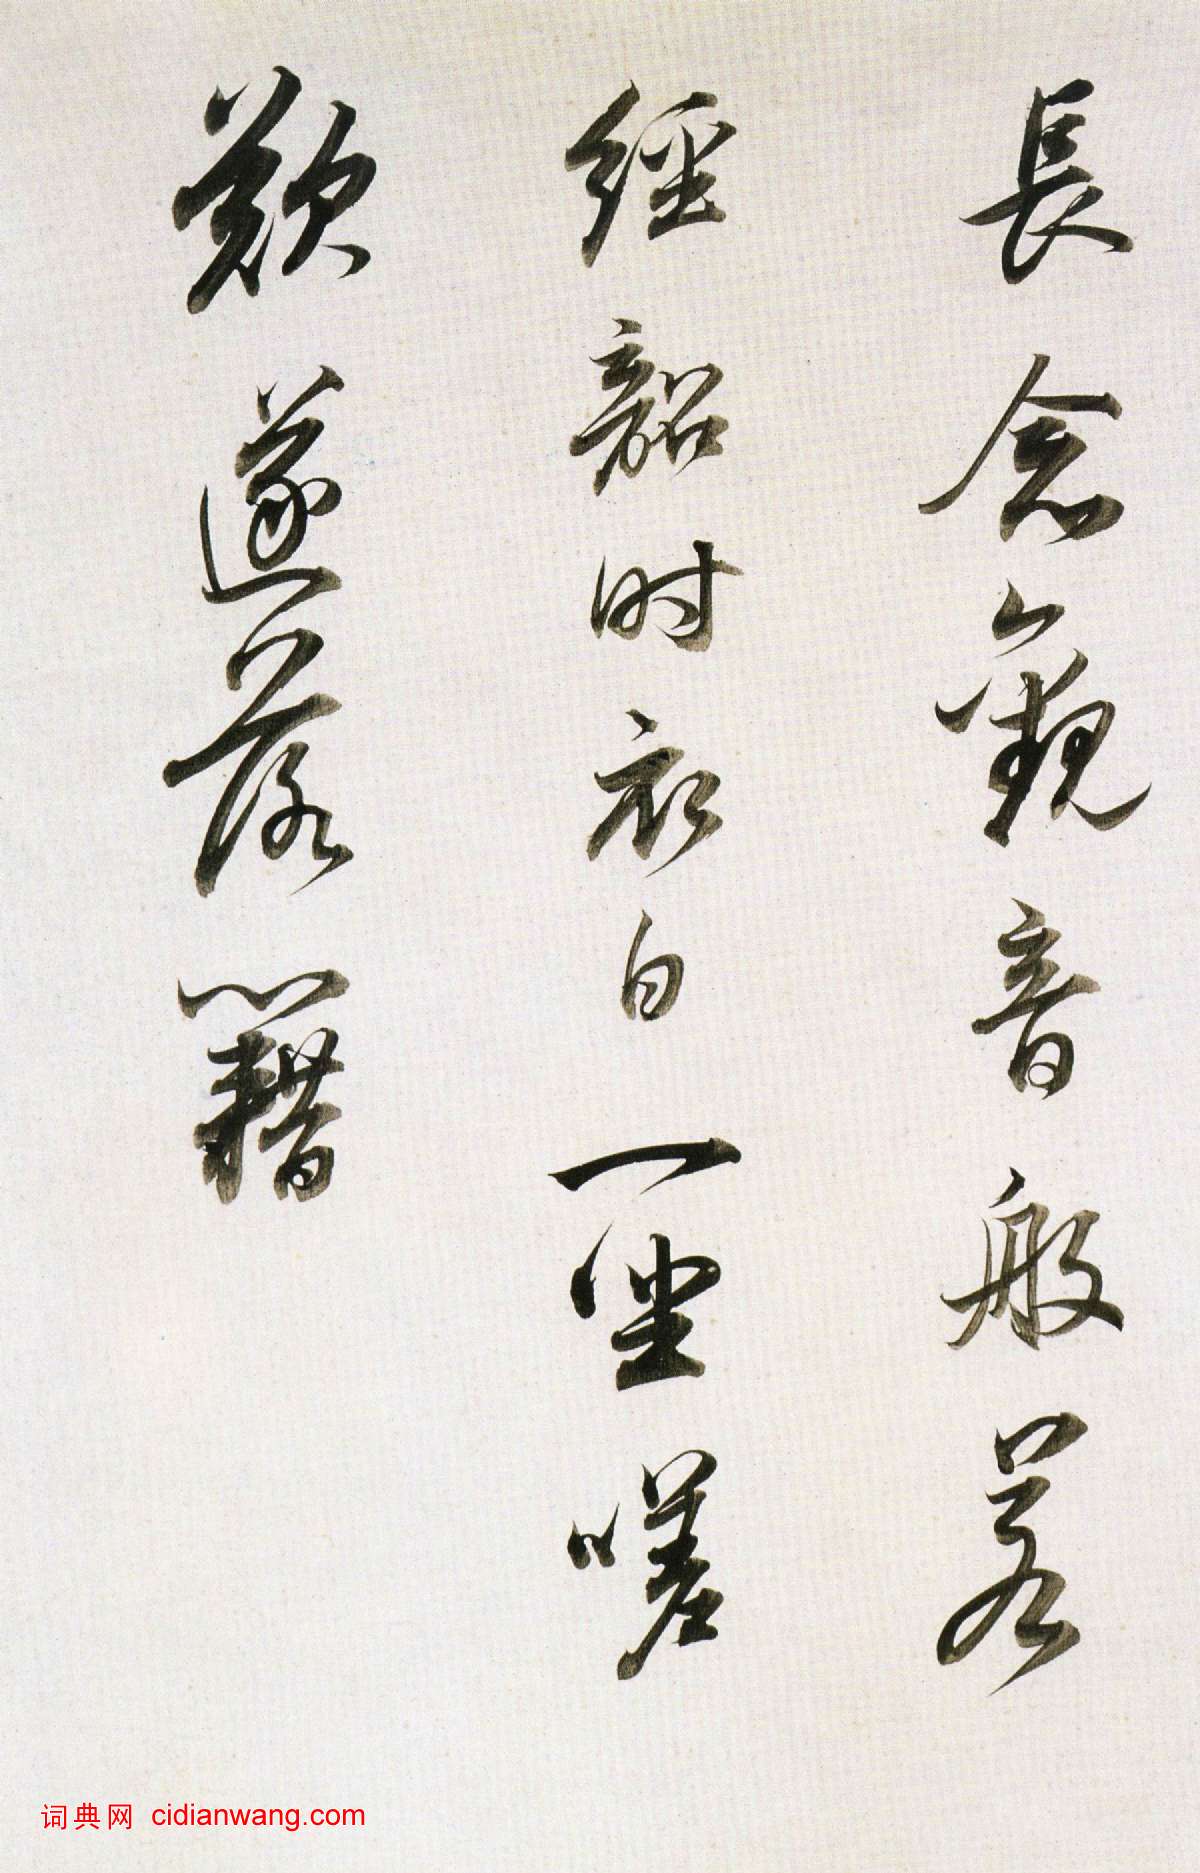 長念觀音般若
經韶时衣白一坐嗟
歎遂落籍
词典网 cidianwang.com